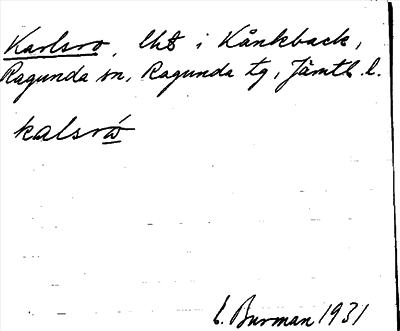 Karlsro, lht i Kånkback,
Ragunda sn, Ragunda tg, Jämtl. l.
kalsrὼ
E. Burman 1931